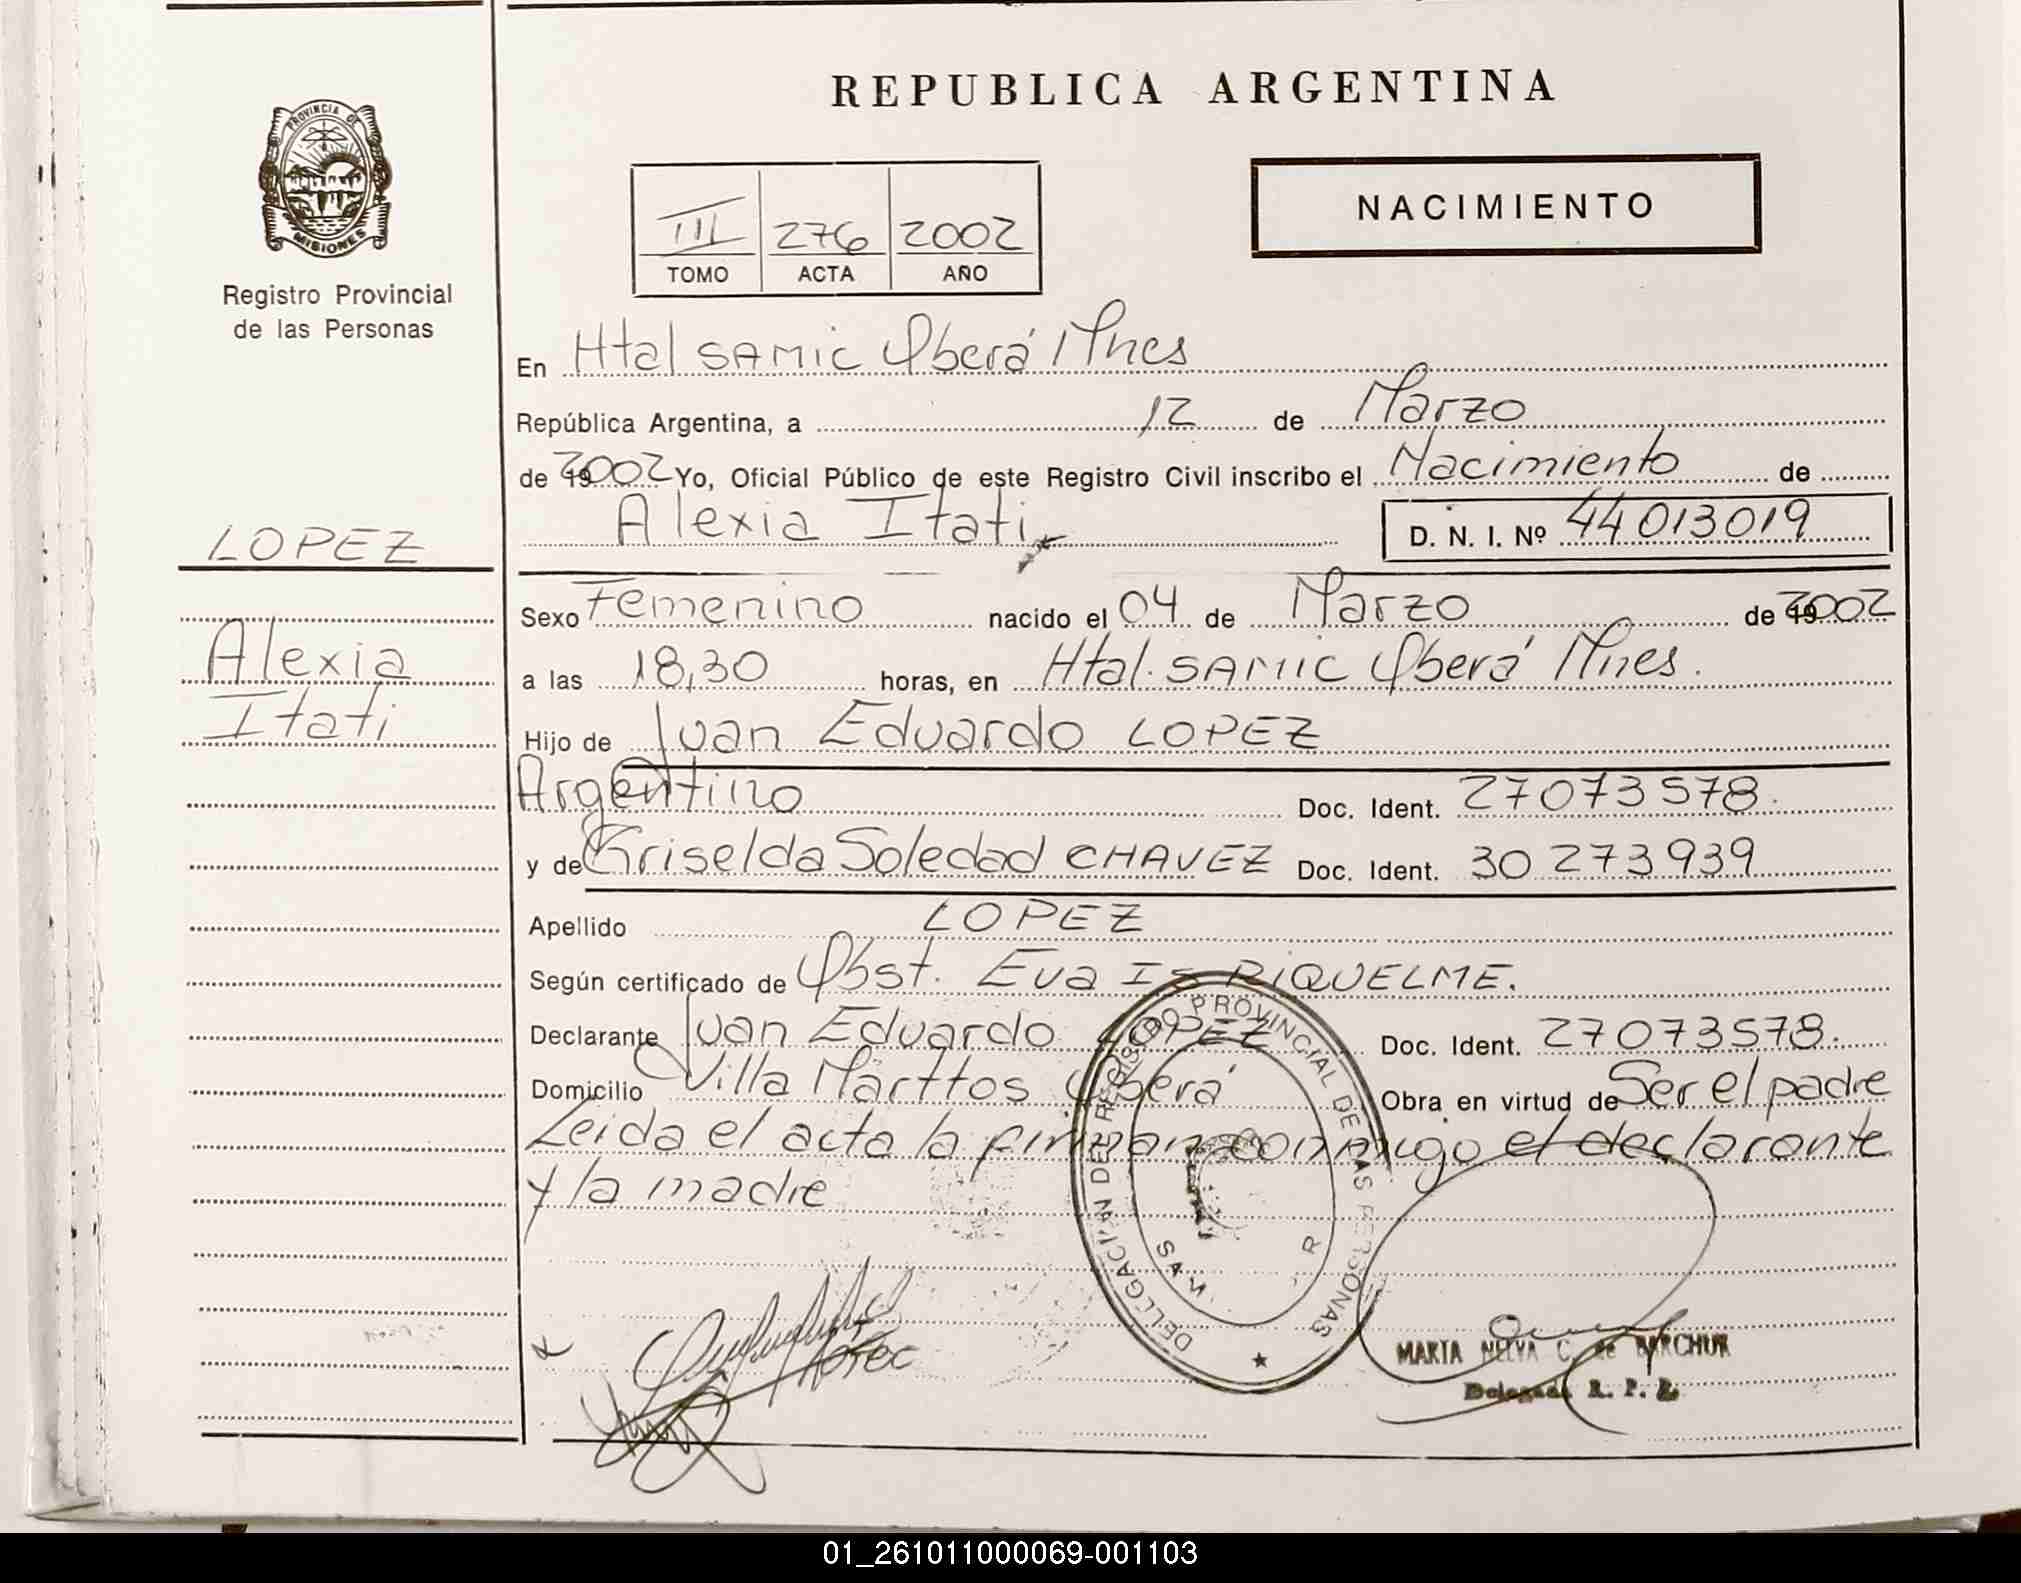 REPUBLICA ARGENTINA
PROVINCIA DE
MISIONES
Registro Provincial
de las Personas
III 276 2002
TOMO ACTA AÑO
NACIMIENTO
En Htal SAMIC Oberá Mnes
República Argentina, a 12 de Marzo
de 2002 Yo, Oficial Público de este Registro Civil inscribo el Nacimiento de
Alexia Itati D. N. I. Nº 44013019
LOPEZ
Alexia
Itati
Sexo Femenino nacido el 04 de Marzo de 2002
a las 18,30 horas, en Htal. SAMIC Oberá Mnes.
Hijo de Juan Eduardo LOPEZ
Argentino Doc. Ident. 27073578.
y de Griselda Soledad CHAVEZ Doc. Ident. 30 273939
Apellido LOPEZ
Según certificado de Obst. Eva Is RIQUELME.
Declarante Juan Eduardo LOPEZ Doc. Ident. 27073578.
Domicilio Villa Marttos Oberá Obra en virtud de Ser el padre
Leida el acta la firman conmigo el declarante
y la madre
DELEGACION DEL REGISTRO PROVINCIAL DE LAS PERSONAS
MARIA NELVA C. de BARCHUK
Delegada R. P. P.
01_261011000069-001103